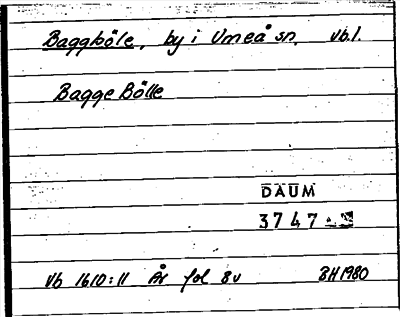 Baggböle, by i Umeå sn, Vb.l.
Bagge Bölle
DAUM
3747
Vb 1610:11 År fol 8v BH 1980